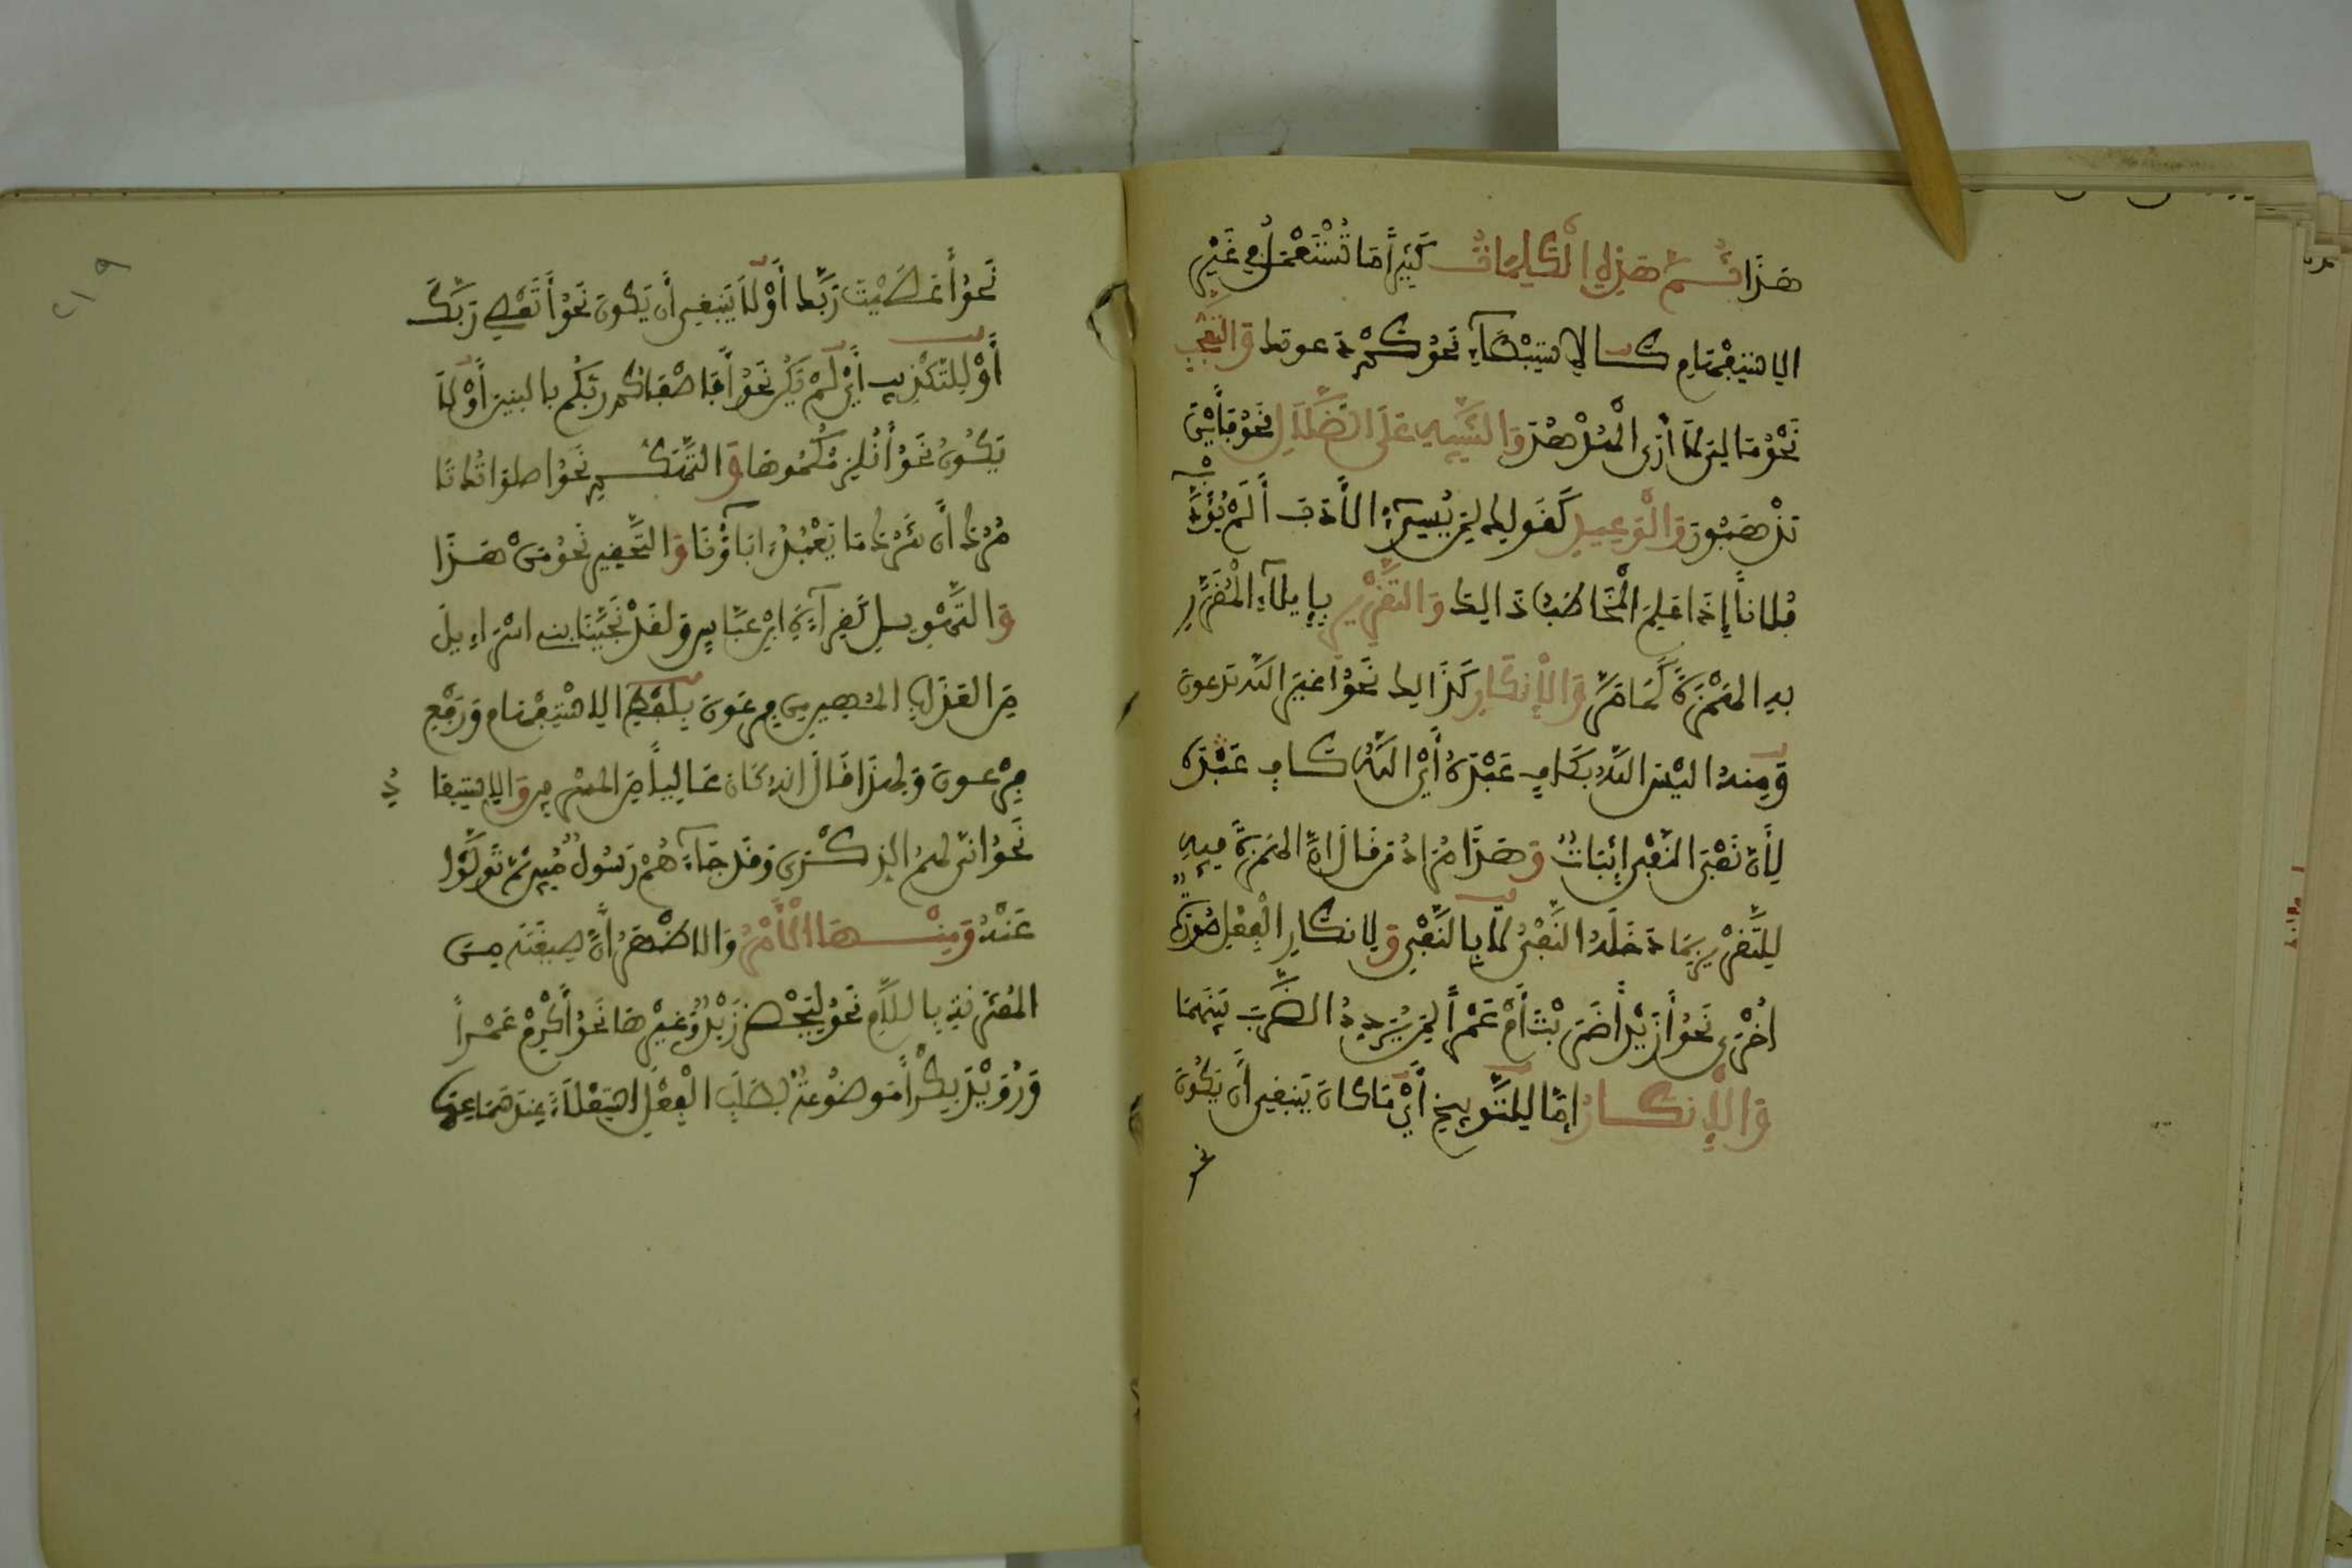 هذا ثُمَّ هذِهِ الْكَلِمَاتُ كَثِيراً مَا تُسْتَعْمَلُ فِي غَيْرِ
الاستفهام كالاستبطاء نحو كم دعوتك والتعجب
نحو مالي لا أرى الهدهد والتنبيه على الضلال نحو فأين
تذهبون والوعيد كقولك لمن يسيء الأدب ألم أؤدب
فلانا إذا علم المخاطب ذالك والتقرير بإيلاء المقرر
به الهمزة كما مر والإنكار كذالك نحو أغير الله تدعون
ومنه أليس الله بكاف عبده أي الله كاف عبده
لأن نفي النفي إثبات وهذا مراد من قال إن الهمزة فيه
للتقرير بما دخله النفي لا بالنفي ولإنكار الفعل صورة
أخرى نحو أزيدا ضربت أم عمرا لمن يردد الضرب بينهما
والإنكار إما للتوبيخ أي ما كان ينبغي أن يكون
نحو
٢١٩
نحو أعصيت ربك أو لا ينبغي أن يكون نحو أتعصي ربك
أو للتكذيب أي لم يكن نحو أفأصفاكم ربكم بالبنين أو لا
يكون نحو أنلزمكموها والتهكم نحو أصلواتك تا
مرك أن نترك ما يعبد ءاباؤنا والتحقير نحو من هذا
والتهويل كقراءة ابن عباس ولقد نجينا بني إسراءيل
من العذاب المهين من فرعون بلفظ الاستفهام ورفع
فرعون ولهذا قال إنه كان عاليا من المسرفين والاستبعا
د
نحو أنى لهم الذكرى وقد جاءهم رسول مبين ثم تولوا
عنه ومنها الأمر والأظهر أن صيغته من
المقترنة باللام نحو ليحضر زيد وغيرها نحو أكرم عمرا
ورويد بكرا موضوعة لطلب الفعل استعلاء